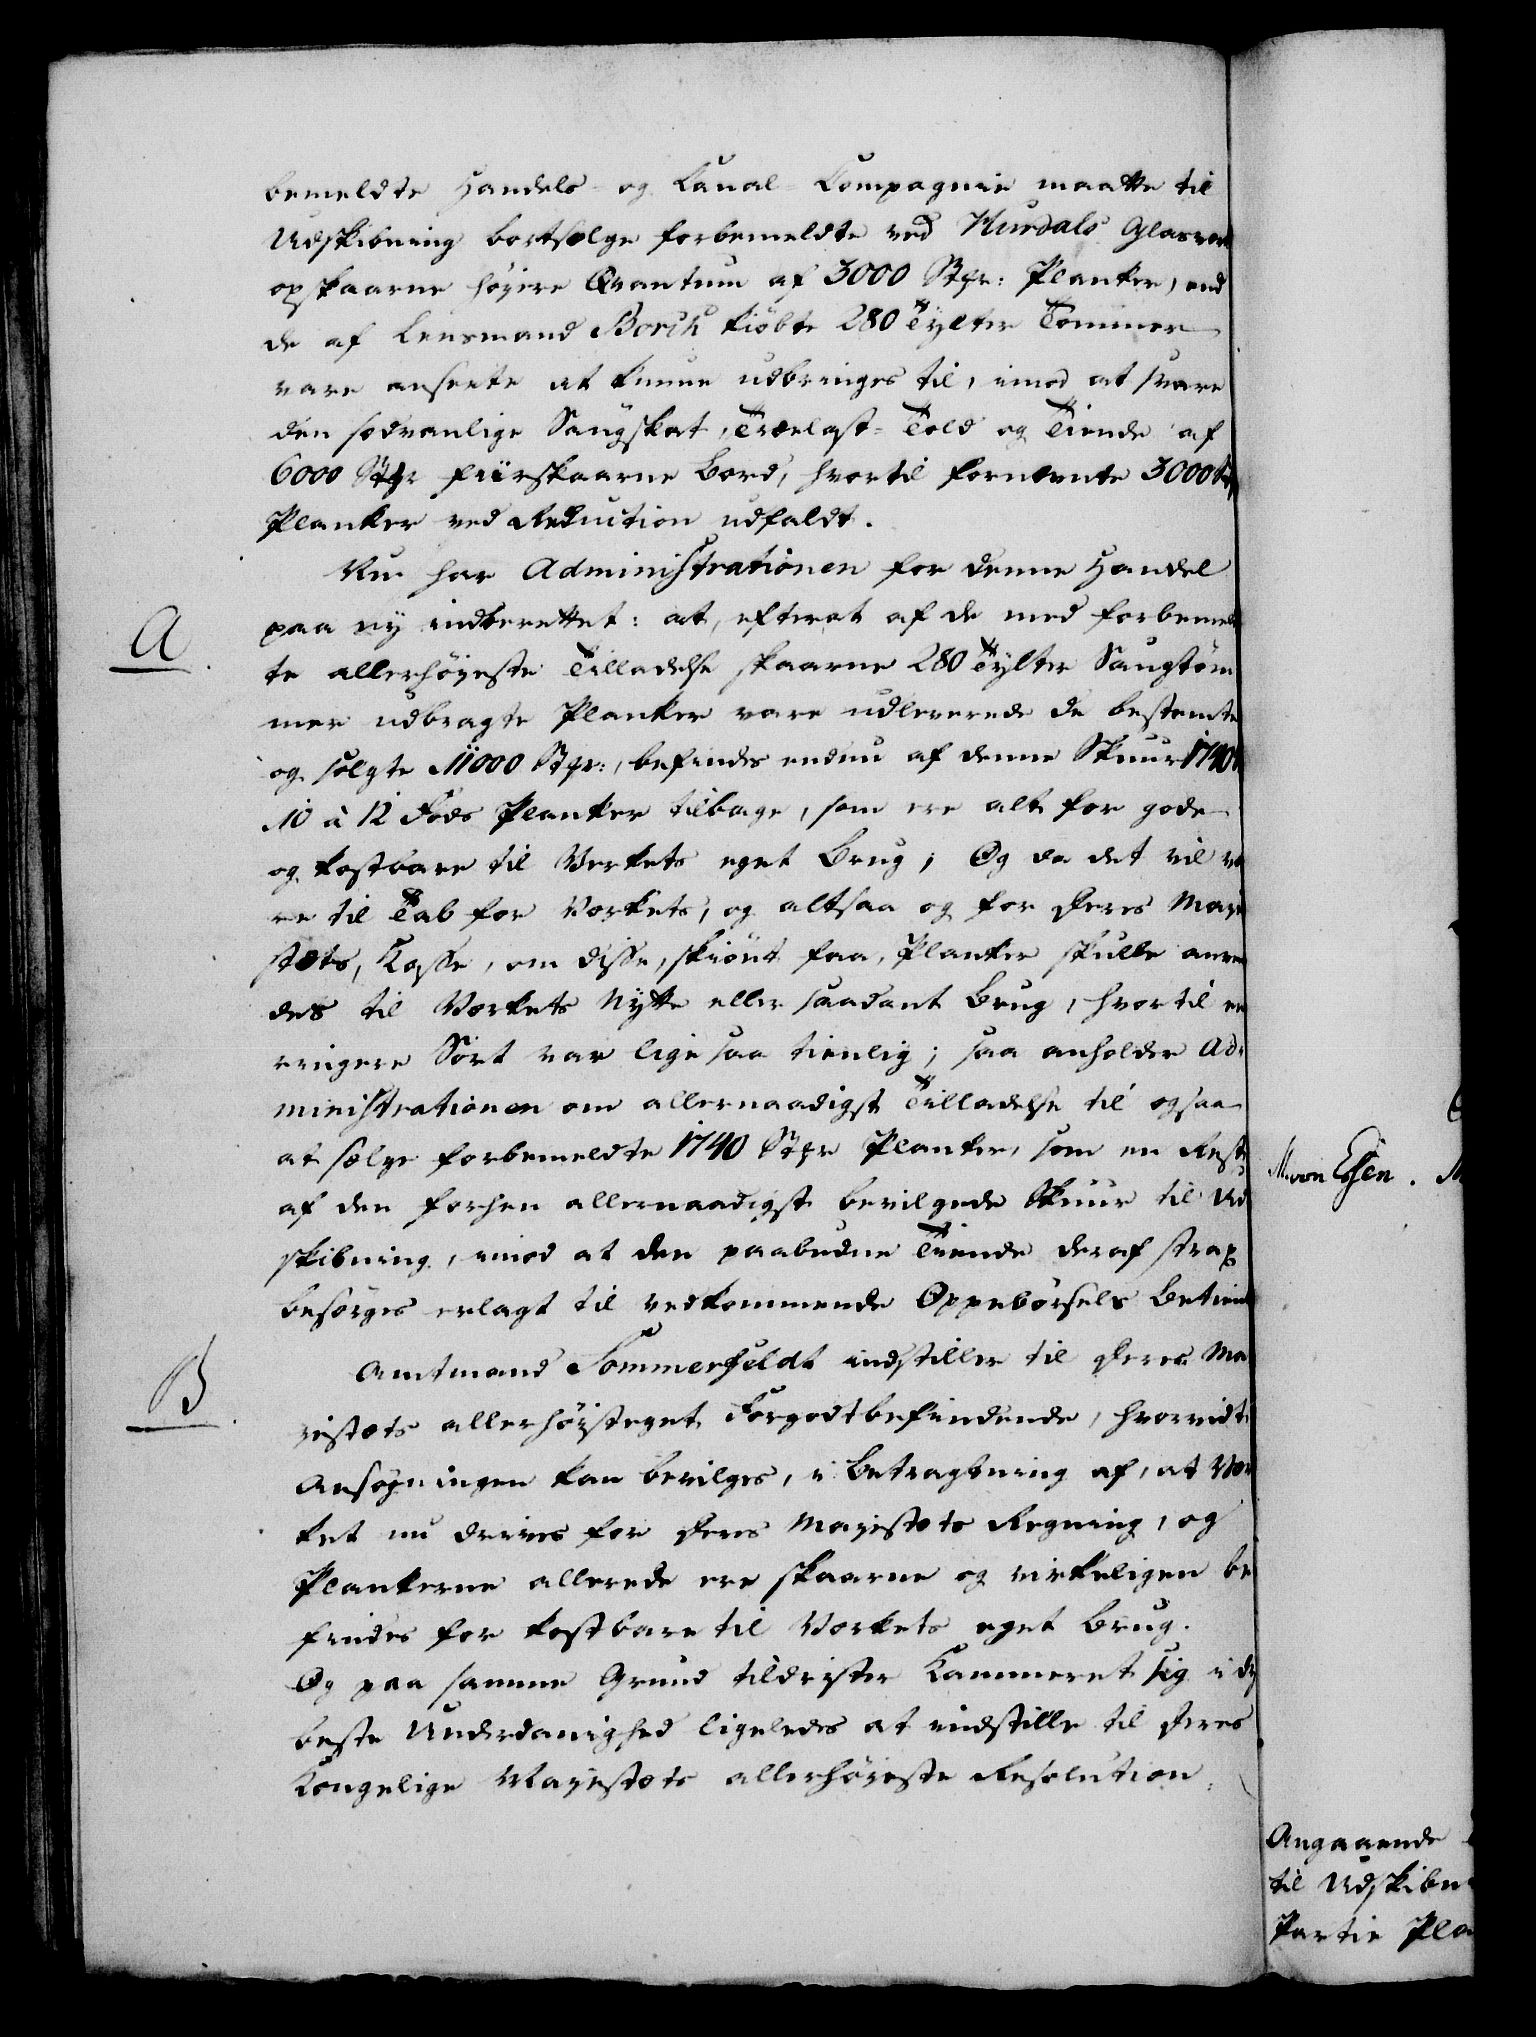 bemeldte Handels- og Canal-Compagnie maatte til
Udskibning bortselge forbemeldte ved Hurdals Glasverk
opskaarne høyere Qvantum af 3000 Stkr: Planker, end
de af Lensmand Borch kiøbte 280 Tylter Tømmer
vare anseete at kunne udbringes til, imod at svare
den sædvanlige Saugskat, Trælast-Told og Tiende af
6000 Stkr fiirskaarne Bord, hvortil fornævnte 3000 Stkr
Planker ved Reduction udfaldt.
Nu har Administrationen for denne Handel
A. paa ny indberettet: at, efterat af de med forbemeld
te allerhøyeste Tilladelse skaarne 280 Tylter Saugtøm
mer udbragte Planker vare udleverede de bestemte
og solgte 11000 Stkr:, befindes endnu af denne Skuur 1740
10 à 12 Fods Planker tilbage, som ere alt for gode
og kostbare til Verkets eget Brug; Og da det vil væ
re til Tab for Verkets, og altsaa og for Deres Maje
stæts, Kasse, om disse, skiønt faa, Planker skulle anven
des til Verkets Nytte eller saadant Brug, hvortil en
ringere Sort var lige saa tienlig; saa anholder Ad-
ministrationen om allernaadigst Tilladelse til ogsaa
at selge forbemeldte 1740 Stkr Planker, som en Rest
af den forhen allernaadigst bevilgede Skuur til Ud
skibning, imod at den paabudne Tiende deraf strax
besørges erlagt til vedkommende Oppebørsels Betient
B. Amtmand Sommerfeldt indstiller til Deres Ma
jestæts allerhøisteget Forgodtbefindende, hvorvidt
Ansøgningen kan bevilges, i Betragtning af, at Ver
ket nu drives for Deres Majestæts Regning, og
Plankerne allerede ere skaarne og virkeligen be
findes for kostbare til Verkets eget Brug.
Og paa samme Grund tildrister Kammeret sig i dy
beste Underdanighed ligeledes at indstille til Deres
Kongelige Majestæts allerhøieste Resolution,
M. von Essen.
Angaaende
til Udskibn
Partie Pla